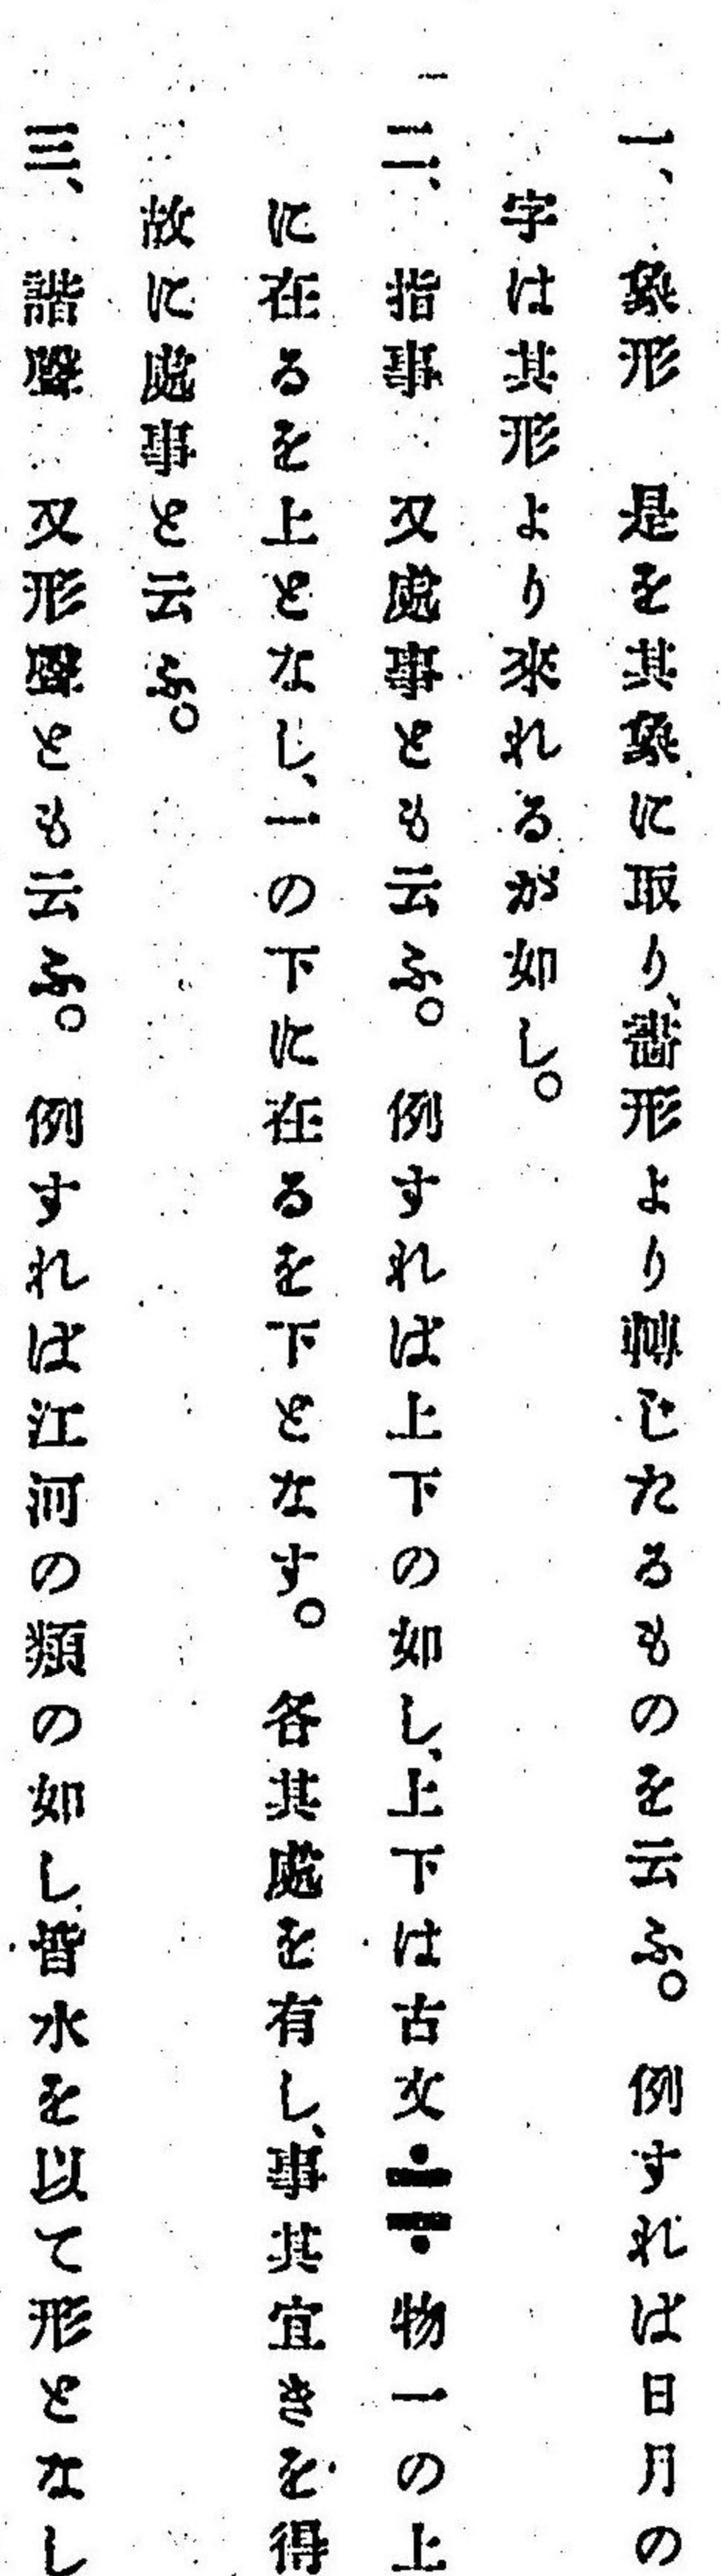 一、象形　是を其象に取り、畵形より轉じたるものを云ふ。例すれば日月の
字は其形より來れるが如し。
二、指事　又處事とも云ふ。例すれば上下の如し、上下は古文 物一の上
に在るを上となし、一の下に在るを下となす。各其處を有し、事其宜きを得
故に處事と云ふ。
三、諧聲　又形聲とも云ふ。例すれば江河の類の如し、皆水を以て形となし